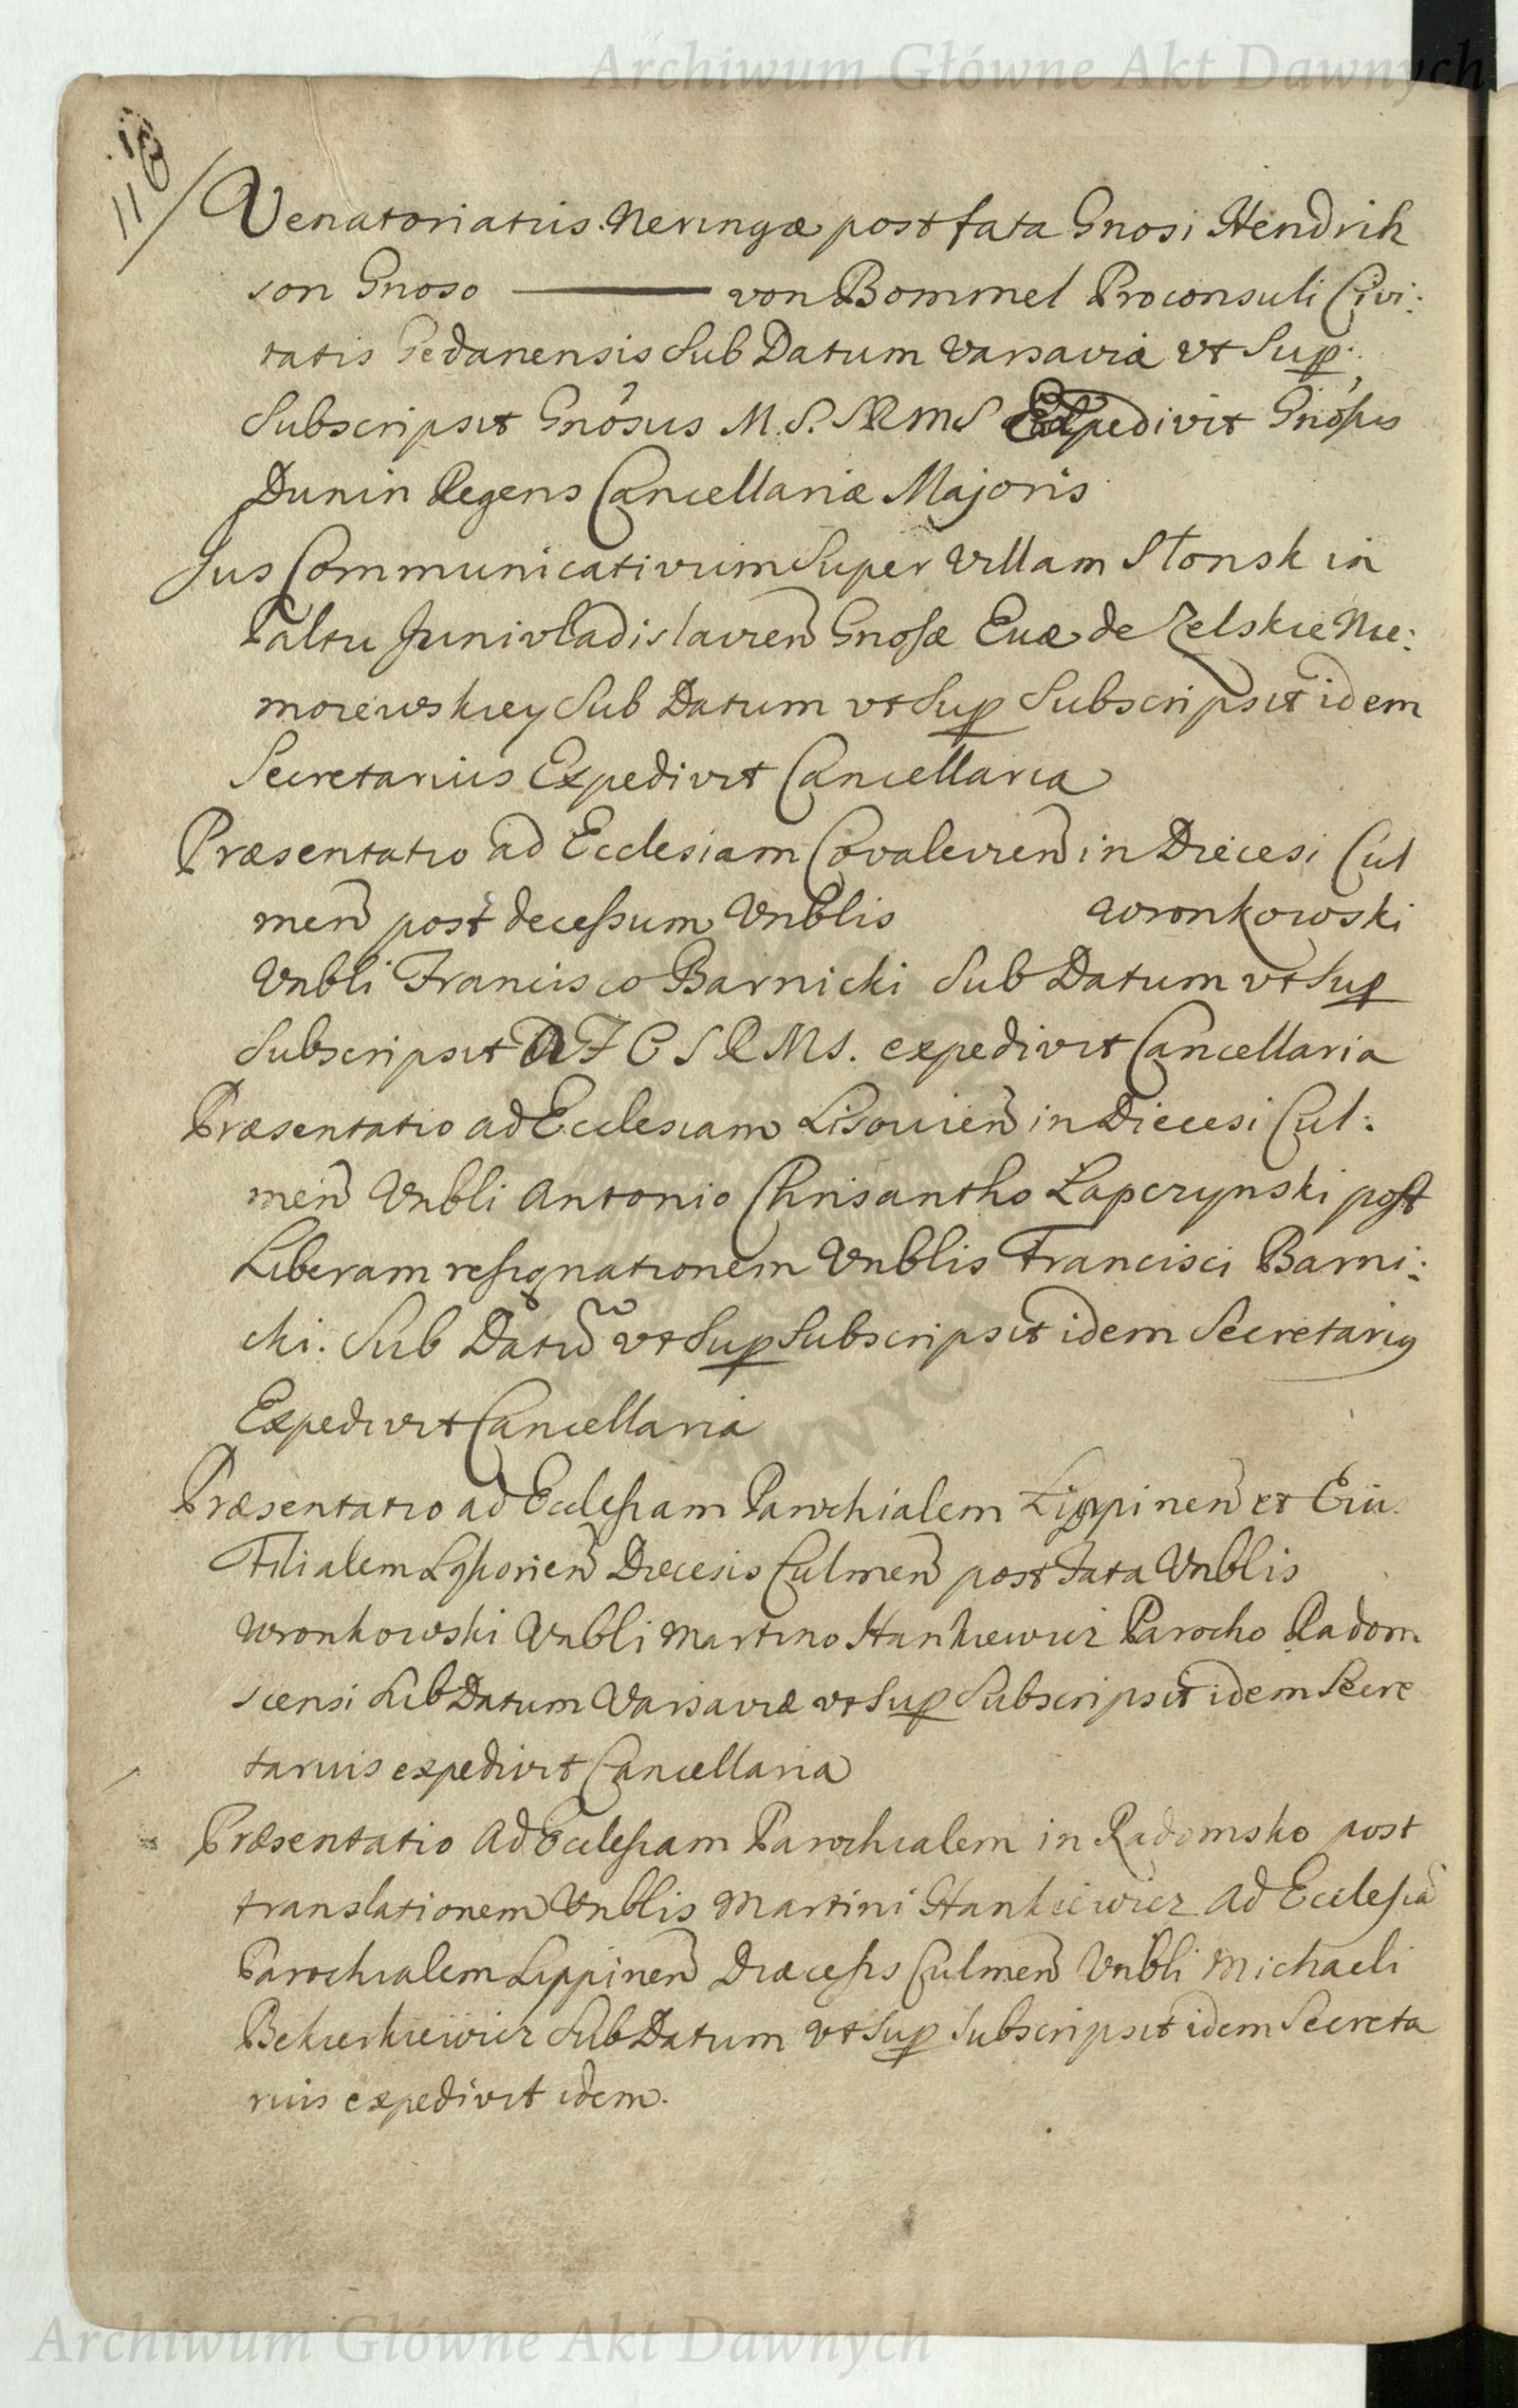 Archiwum Główne Akt Dawnych
116
Venatoriatus Neringæ post fata Gnosi Hendrik
son Gnoso ——— von Bommel Proconsuli Civi:
tatis Gedanensis Sub Datum Varsaviæ vt Sup:
Subscripsit Gnosus M. S. S R M S Expedivit Gnosus
Dunin Regens Cancellariæ Majoris
Jus Communicativum Super Villam Słonsk in
Paltu Junivladislavien Gnosæ Evæ de Zelskie Nie:
moiewskiey Sub Datum vt Sup Subscripsit idem
Secretarius Expedivit Cancellaria
Præsentatio ad Ecclesiam Covalevien in Diecesi Cul
men post decessum Vnblis Wronkowski
Vnbli Francisco Barnicki Sub Datum vt Sup
Subscripsit A F C S R M S. expedivit Cancellaria
Præsentatio ad Ecclesiam Lisovien in Diecesi Cul:
men Vnbli Antonio Chrisantho Lapczynski post
Liberam resignationem Vnblis Francisci Barni:
cki. Sub Datu vt Sup Subscripsit idem Secretarius
Expedivit Cancellaria
Præsentatio ad Ecclesiam Parochialem Lippinen et Eius
Filialem Diecesis Culmen post Fata Vnblis
Wronkowski Vnbli Martino Hankiewicz Parocho Radom
scensi Sub Datum Varsaviæ vt Sup Subscripsit idem Secre
tarius expedivit Cancellaria
Præsentatio Ad Ecclesiam Parochialem in Radomsko post
translationem Vnblis Martini Hankiewicz Ad Ecclesia
Parochialem Lippinen Diæcesis Culmen Vnbli Michaeli
Bekierkiewicz Sub Datum vt Sup Subscripsit idem Secreta
rius expedivit idem.
Archiwum Główne Akt Dawnych